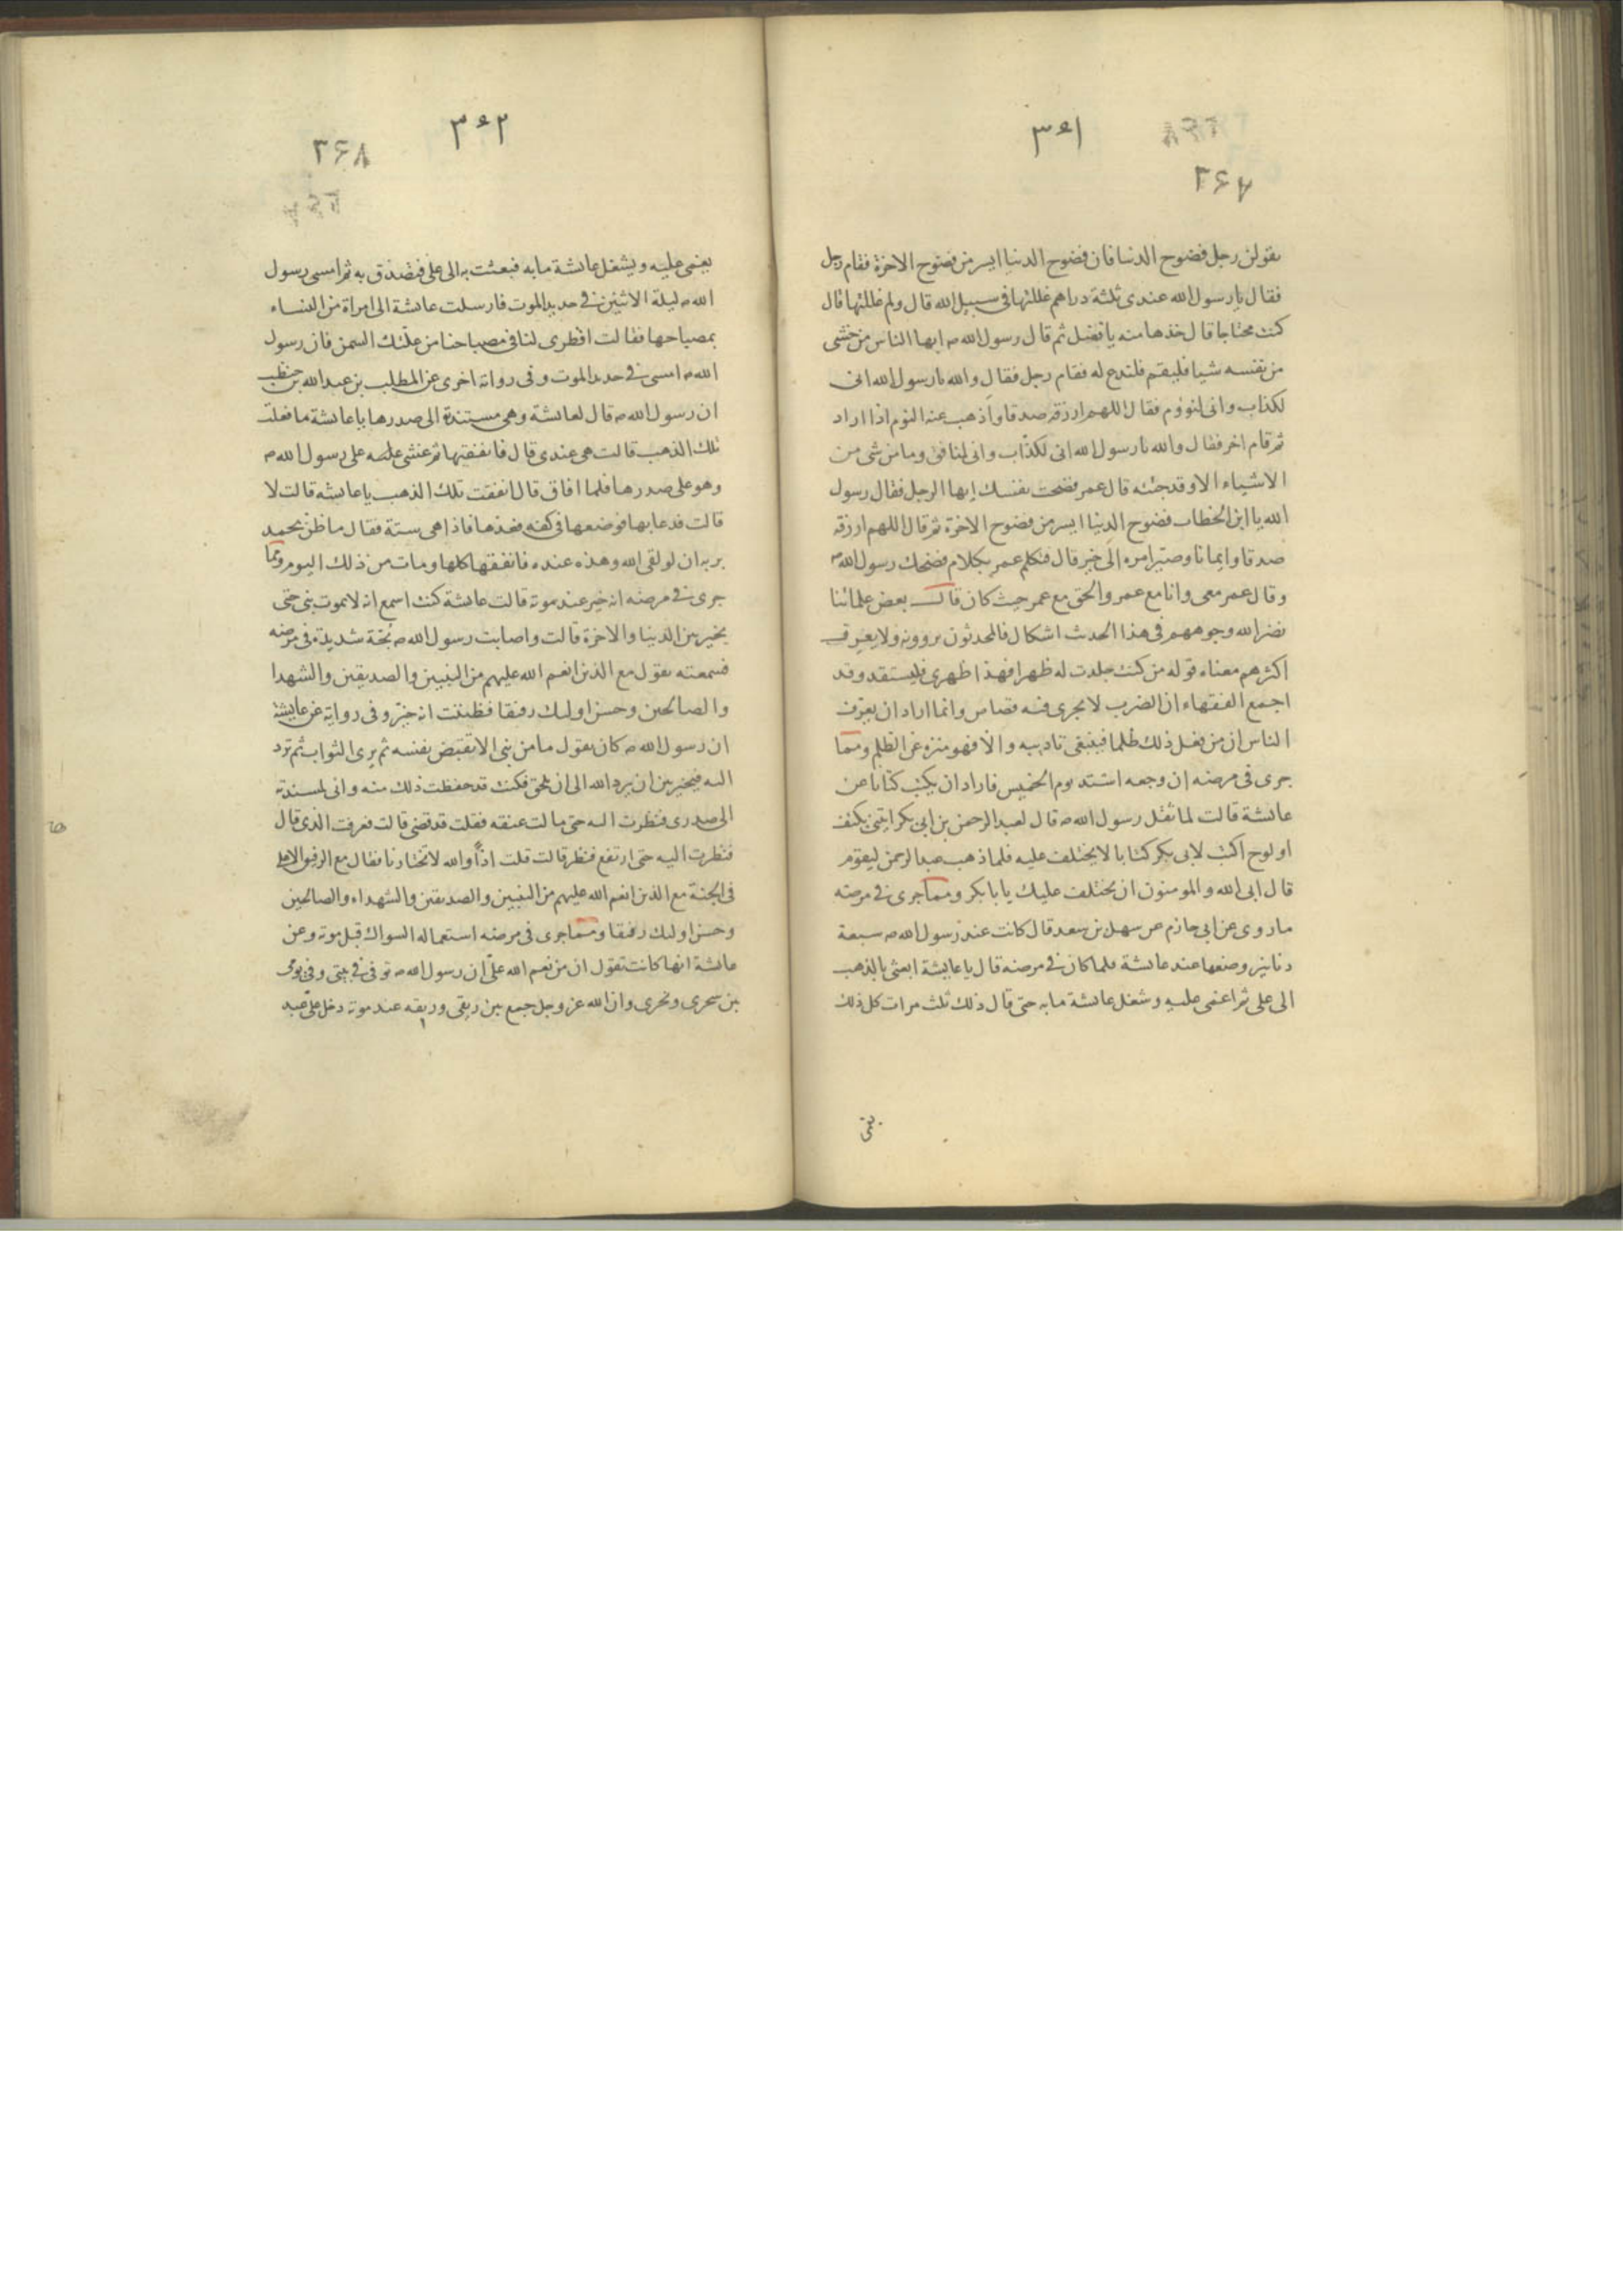 ٣٥١
٢٦٧
يقولن رجل فضوح الدنيا فان فضوح الدنيا ايسر من فضوح الاخرة فقام رجل
فقال يا رسول الله عندى ثلثة دراهم غللتها فى سبيل الله قال ولم غللتها قال
كنت محتاجا قال خذها منه يا فضل ثم قال رسول الله ص ايها الناس من خشى
من نفسه شيا فليقم فلندع له فقام رجل فقال والله يا رسول الله انى
لكذاب وانى لنووم فقال اللهم ارزقه صدقا واذهب عنه النوم اذا اراد
ثم قام اخر فقال والله يا رسول الله انى لكذاب وانى لمنافق وما من شى من
الاشياء الا وقد جئته قال عمر فضحت نفسك ايها الرجل فقال رسول
الله يا ابن الخطاب فضوح الدنيا ايسر من فضوح الاخرة ثم قال اللهم ارزقه
صدقا وايمانا وصير امره الى خير قال فتكلم عمر بكلام فضحك رسول الله ص
وقال عمر معى وانا مع عمر والحق مع عمر حيث كان قال بعض علمائنا
نضر الله وجوههم فى هذا الحدث اشكال فالمحدثون يروونه ولا يعرف
اكثرهم معناه قوله من كنت جلدت له ظهرا فهذا ظهرى فليستقد وقد
اجمع الفقهاء ان الضرب لا يجرى فيه قصاص وانما اراد ان يعرف
الناس ان من فعل ذلك ظلما فينبغى تاديبه والا فهو منزه عن الظلم ومما
جرى فى مرضه ان وجعه اشتد يوم الخميس فاراد ان يكتب كتابا عن
عائشة قالت لما ثقل رسول الله ص قال لعبد الرحمن بن ابى بكر ايتنى بكتف
او لوح اكتب لابى بكر كتابا لا يختلف عليه فلما ذهب عبد الرحمن ليقوم
قال ابى الله والمومنون ان يختلف عليك يا بابكر ومما جرى فى مرضه
ما روى عن ابى حازم عن سهل بن سعد قال كانت عند رسول الله ص سبعة
دنانير وضعها عند عائشة فلما كان فى مرضه قال يا عايشة ابعثى بالذهب
الى على ثم اغمى عليه وشغل عائشة ما به حتى قال ذلك ثلث مرات كل ذلك
يغمى
٣٥٢
٢٦٨
يغمى عليه ويشغل عائشة ما به فبعثت به الى على فتصدق به ثم امسى رسول
الله ص ليلة الاثنين فى حديد الموت فارسلت عائشة الى امراة من النساء
بمصباحها فقالت اقطرى لنا فى مصباحنا من عكتك السمن فان رسول
الله ص امسى فى حديد الموت وفى رواية اخرى عن المطلب بن عبد الله بن حنطب
ان رسول الله ص قال لعائشة وهى مستندة الى صدرها يا عائشة ما فعلت
تلك الذهب قالت هى عندى قال فانفقيها ثم غشى عليه على رسول الله ص
وهو على صدرها فلما افاق قال انفقت تلك الذهب يا عائشة قالت لا
قالت فدعا بها فوضعها فى كفه فعدها فاذا هى ستة فقال ما ظن محمد
بربه ان لو لقى الله وهذه عنده فانفقها كلها ومات من ذلك اليوم ومما
جرى فى مرضه انه خير عند موته قالت عائشة كنت اسمع انه لا يموت نبى حتى
يخير بين الدنيا والاخرة قالت واصابت رسول الله ص بحة شديدة فى مرضه
فسمعته يقول مع الذين انعم الله عليهم من النبيين والصديقين والشهدا
والصالحين وحسن اوليك رفيقا فظننت انه خير وفى رواية عن عايشة
ان رسول الله ص كان يقول ما من نبى الا تقبض نفسه ثم يرى الثواب ثم ترد
اليه فيخير بين ان يرد الله الى ان يلحق فكنت قد حفظت ذلك منه وانى لمسندته
الى صدرى فنظرت اليه حتى مالت عنقه فقلت قد قضى قالت فعرفت الذى قال
فنظرت اليه حتى ارتفع فنظر قالت قلت اذاً والله لا تختارنا فقال مع الرفيق الاعلى
فى الجنة مع الذين انعم الله عليهم من النبيين والصديقين والشهداء والصالحين
وحسن اوليك رفيقا ومما جرى فى مرضه استعماله السواك قبل موته وعن
عائشة انها كانت تقول ان من نعم الله على ان رسول الله ص توفى فى بيتى وفى يومى
بين سحرى ونحرى وان الله عز وجل جمع بين ريقى وريقه عند موته دخل على عبد